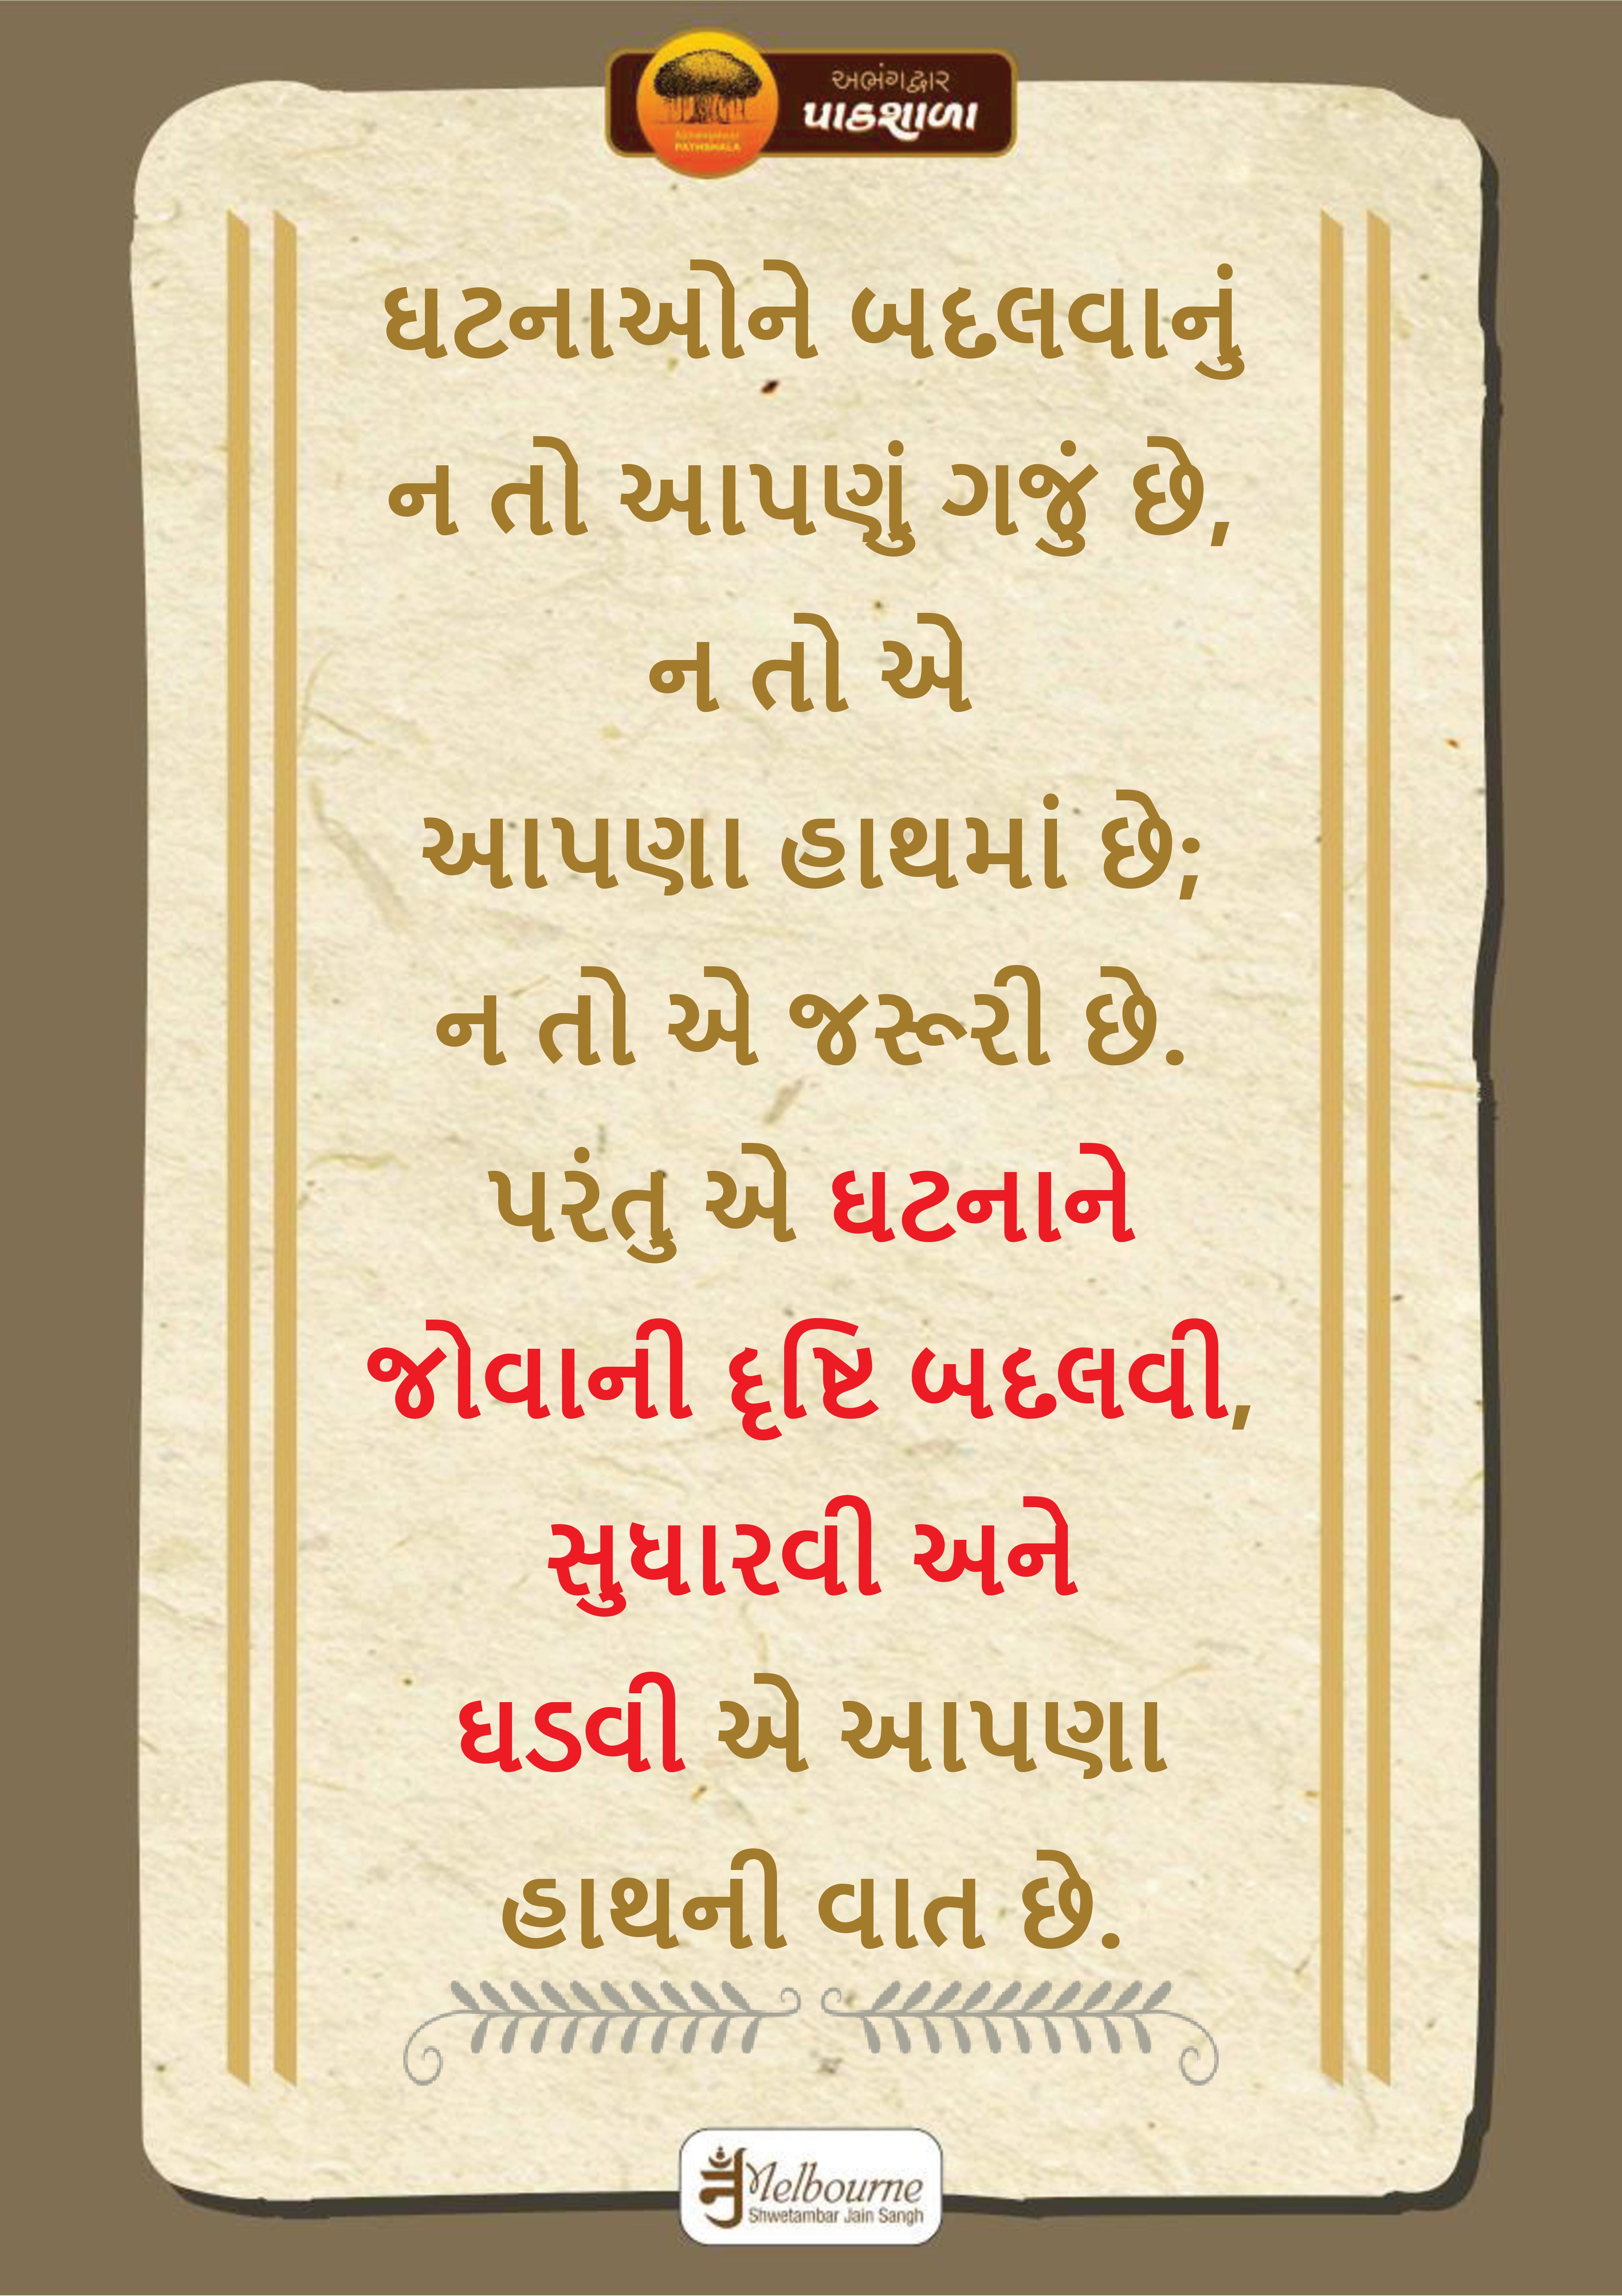 અભંગદ્વાર
પાઠશાળા
PATHSHALA
ઘટનાઓને બદલવાનું
ન તો આપણું ગજું છે,
ન તો એ
આપણા હાથમાં છે;
ન તો એ જરૂરી છે.
પરંતુ એ ઘટનાને
જોવાની દૃષ્ટિ બદલવી,
સુધારવી અને
ઘડવી એ આપણા
હાથની વાત છે.
Melbourne
Shwetambar Jain Sangh